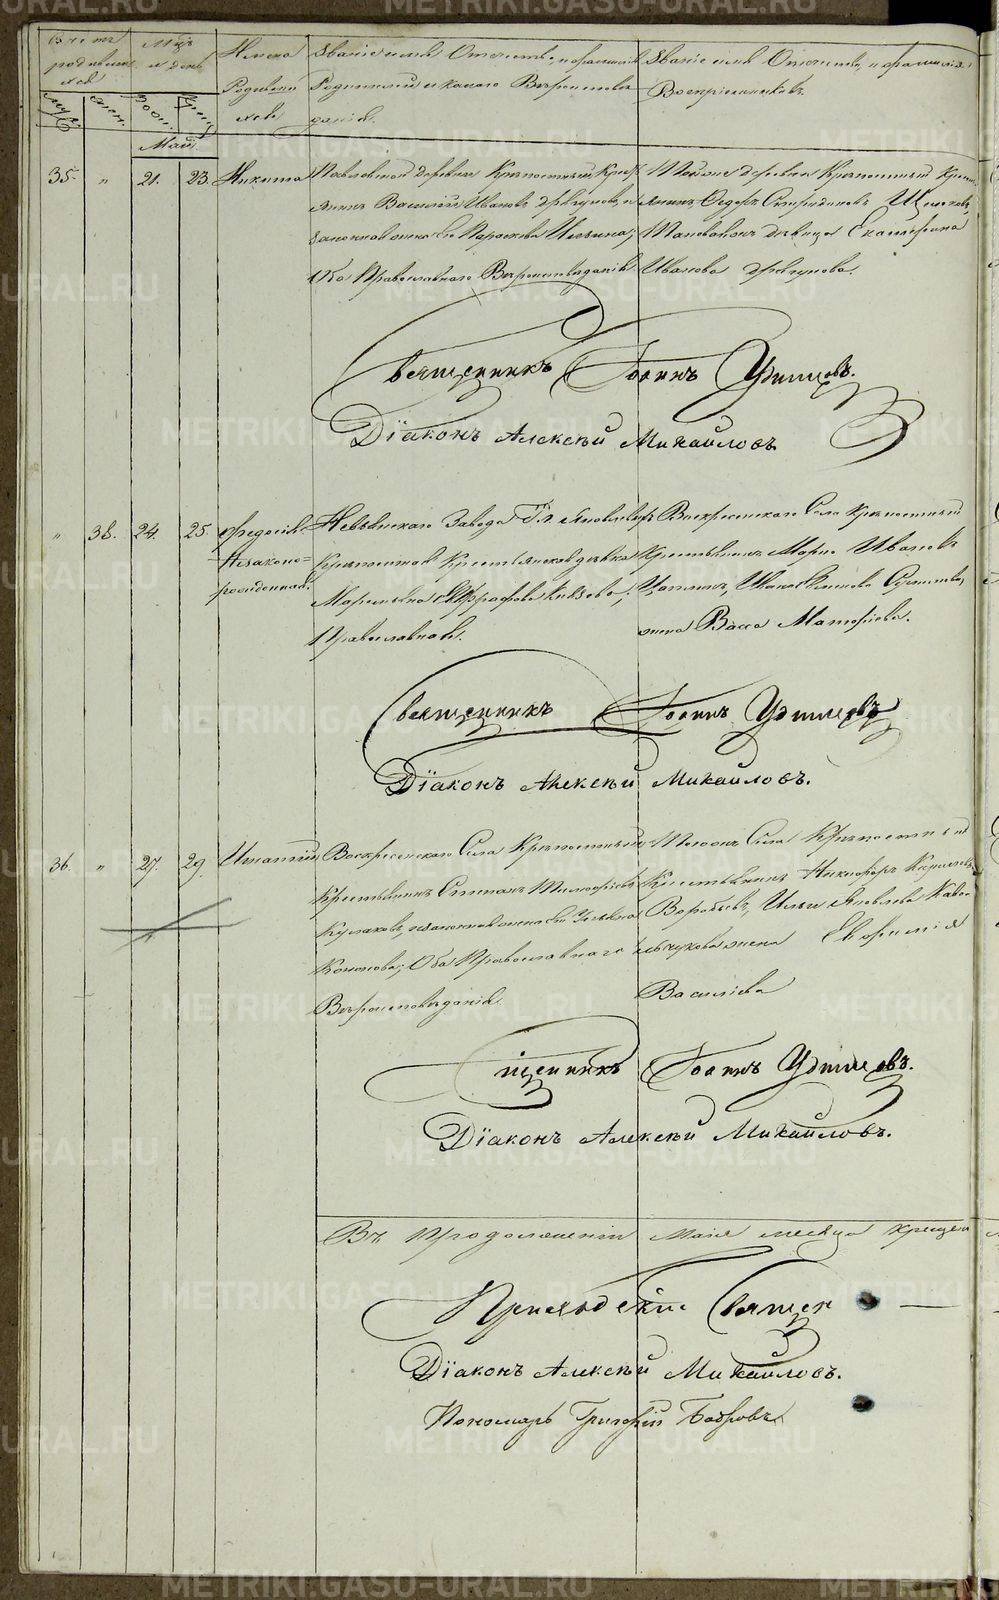 Счетъ родившихся
Мѣс. и день
Имена Родившихся
Званіе имя Отчество, и фамилія Родителей и какого Вѣроисповѣданія.
Званіе имя Отчество, и фамилія Воспріемниковъ.
муж. жен. рожд. крещ.
Май.
35. " 21. 23. Никита
Павловской деревни Крѣпостный Крестьянинъ Василій Ивановъ
законная жена его Параскева Ильина;
Оба Православнаго Вѣроисповѣданія
Тойже деревни Крѣпостный Крестьянинъ Ѳедоръ Спиридоновъ
Таковаяжъ дѣвица Екатерина
Иванова
Священникъ Іоаннъ Удинцовъ.
Діаконъ Алексѣй Михайловъ
" 38. 24. 25. Ѳедосія
Незаконорожденная.
Невьянскаго Завода Гг. Яковлевыхъ
Крѣпостная Крестьянская дѣвка
Маремьяна Князева;
Православная.
Воскресенскаго Села крѣпостный
Крестьянинъ Марко Ивановъ
жена Васса Матфіева.
Священникъ Іоаннъ Удинцовъ
Діаконъ Алексѣй Михайловъ.
36. " 27. 29. Игнатій
Воскресенскаго Села Крѣпостный
Крестьянинъ Степанъ Тимофѣевъ
Кулаковъ, законная жена его Ульяна
Кононова; Оба Православнаго
Вѣроисповѣданія.
Тогожъ Села Крѣпостный
Крестьянинъ Никифоръ Кириловъ
Воробьевъ, Ильи Яковлева
жена Евфимія
Васильева
Священникъ Іоаннъ Удинцовъ.
Діаконъ Алексѣй Михайловъ.
Въ продолженіи Маія месяца крещен
Приходскіе Священ
Діаконъ Алексѣй Михайловъ.
Пономарь Григорій Бобровъ
METRIKI.GASO-URAL.RU